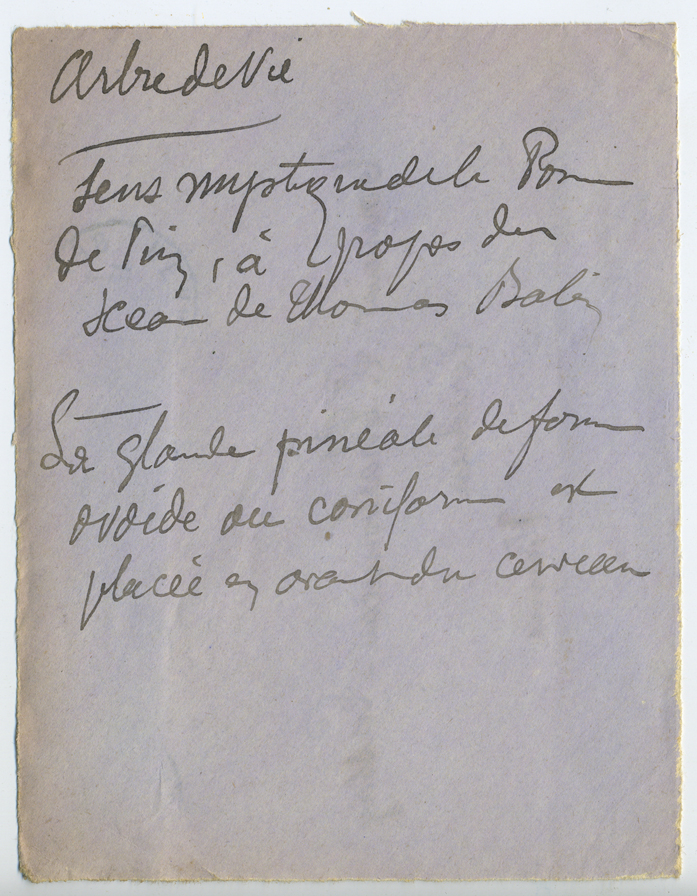 Arbre de Vie
Sens mystique de la Pomme
de Pin, à propos du
sceau de Thomas Babin
La glande pinéale de forme
ovoïde ou coniforme est
placée en avant du cerveau